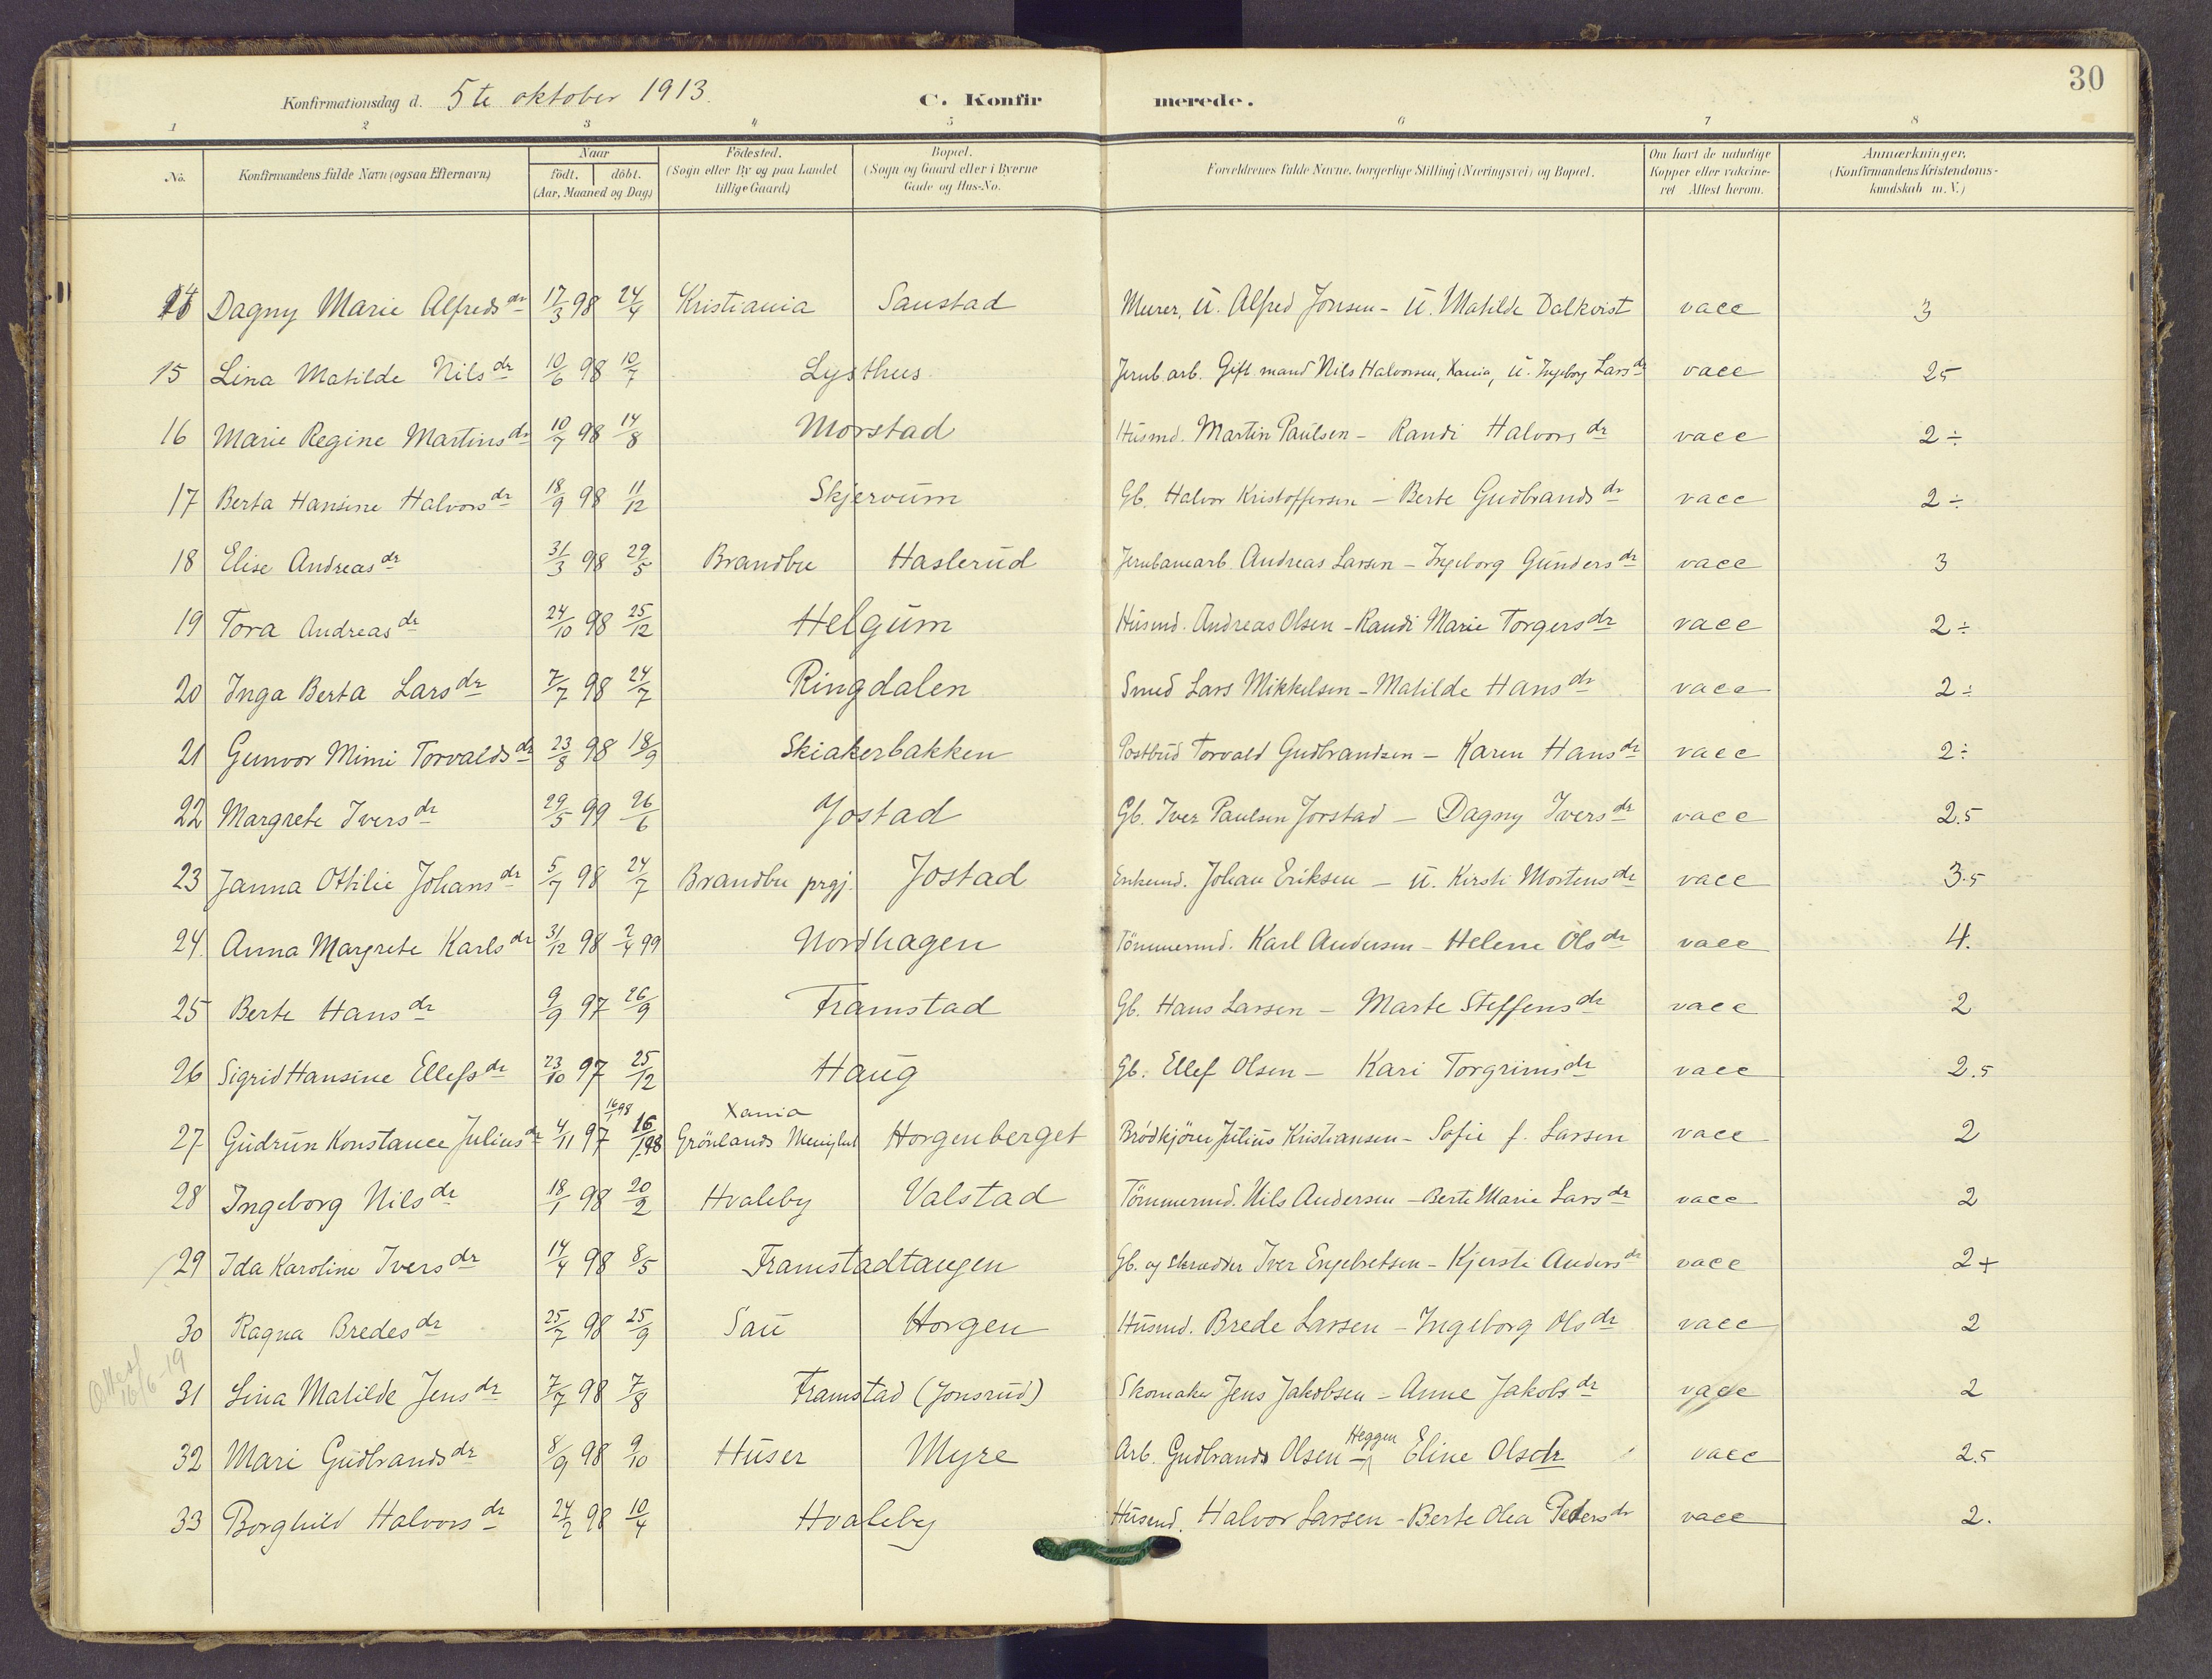 30
Konfirmationsdag d. 5te oktober 1913. C. Konfirmerede.
1 2 3 4 5 6 7 8
No. Konfirmandens fulde Navn (ogsaa Efternavn) Naar født. døbt. (Aar, Maaned og Dag) Fødested. (Sogn eller By og paa Landet tillige Gaard) Bopæl. (Sogn og Gaard eller i Byerne Gade og Hus-No. Forældrenes fulde Navne, borgerlige Stilling (Næringsvei) og Bopæl. Om havt de naturlige Kopper eller vakcineret Attest herom. Anmærkninger. (Konfirmandens Kristendomskundskab m. V.)
14 Dagny Marie Alfredsdr 17/3 98 24/4 Kristiania Saustad Murer, U. Alfred Jonsen - U. Matilde Dalkvist vacc 3
15 Lina Matilde Nilsdr 10/6 98 10/7 Lysthus Jernb.arb. Gift mand Nils Halvorsen, Xania, U. Ingeborg Larsdr vacc 25
16 Marie Regine Martinsdr 10/7 98 14/8 Morstad Husmd. Martin Paulsen - Randi Halvorsdr vacc 2÷
17 Berta Hansine Halvorsdr 18/9 98 11/12 Skjervum Gb. Halvor Kristoffersen - Berte Gudbrandsdr vacc 2÷
18 Elise Andreasdr 31/3 98 29/5 Brandbu Haslerud Jernbanearb. Andreas Larsen - Ingeborg Gundersdr vacc 3
19 Tora Andreasdr 24/10 98 25/12 Helgum Husmd. Andreas Olsen - Randi Marie Torgersdr vacc 2÷
20 Inga Berta Larsdr 7/7 98 24/7 Ringdalen Smed Lars Mikkelsen - Matilde Hansdr vacc 2÷
21 Gunvor Mimi Torvaldsdr 23/8 98 18/9 Skiakerbakken Postbud Torvald Gudbrandsen - Karen Hansdr vacc 2÷
22 Margrete Iversdr 29/5 99 26/6 Jostad Gb. Iver Paulsen Jorstad - Dagny Iversdr vacc 2.5
23 Janna Othilie Johansdr 5/7 98 24/7 Brandbu prgj. Jostad Enkemd. Johan Eriksen - U. Kirsti Mortensdr vacc 3.5
24. Anna Margrete Karlsdr 31/12 98 2/4 99 Nordhagen Tömmermd. Karl Andersen - Helene Olsdr vacc 4.
25 Berte Hansdr 9/9 97 26/9 Framstad Gb. Hans Larsen - Marte Steffensdr vacc 2
26 Sigrid Hansine Ellefsdr 23/10 97 25/12 Haug Gb. Ellef Olsen - Kari Torgrimsdr vacc 2.5
16/1 98 Xania
27 Gudrun Konstance Juliusdr 4/11 97 16/1 98 Grönlands Menighet Horgenberget Brödkjörer Julius Kristiansen - Sofie f. Larsen vacc 2
28 Ingeborg Nilsdr 18/1 98 20/2 Hvaleby Valstad Tömmermd. Nils Andersen - Berte Marie Larsdr vacc 2
29 Ida Karoline Iversdr 14/4 98 8/5 Framstadtangen Gb. og Skrædder Iver Engebretsen - Kjersti Andersdr vacc 2+
30 Ragna Bredesdr 25/7 98 25/9 Sau Horgen Husmd. Brede Larsen - Ingeborg Olsdr vacc 2
Attest 16/6-19
31 Lina Matilde Jensdr 7/7 98 7/8 Framstad (Jonsrud) Skomaker Jens Jakobsen - Anne Jakobsdr vacc 2
32 Mari Gudbrandsdr 8/9 98 9/10 Huser Myre Arb. Gudbrands Olsen - Heggen Eline Olsdr vacc 2.5
33 Borghild Halvorsdr 24/2 98 10/4 Hvaleby Husmd. Halvor Larsen - Berte Olea Pedersdr vacc 2.